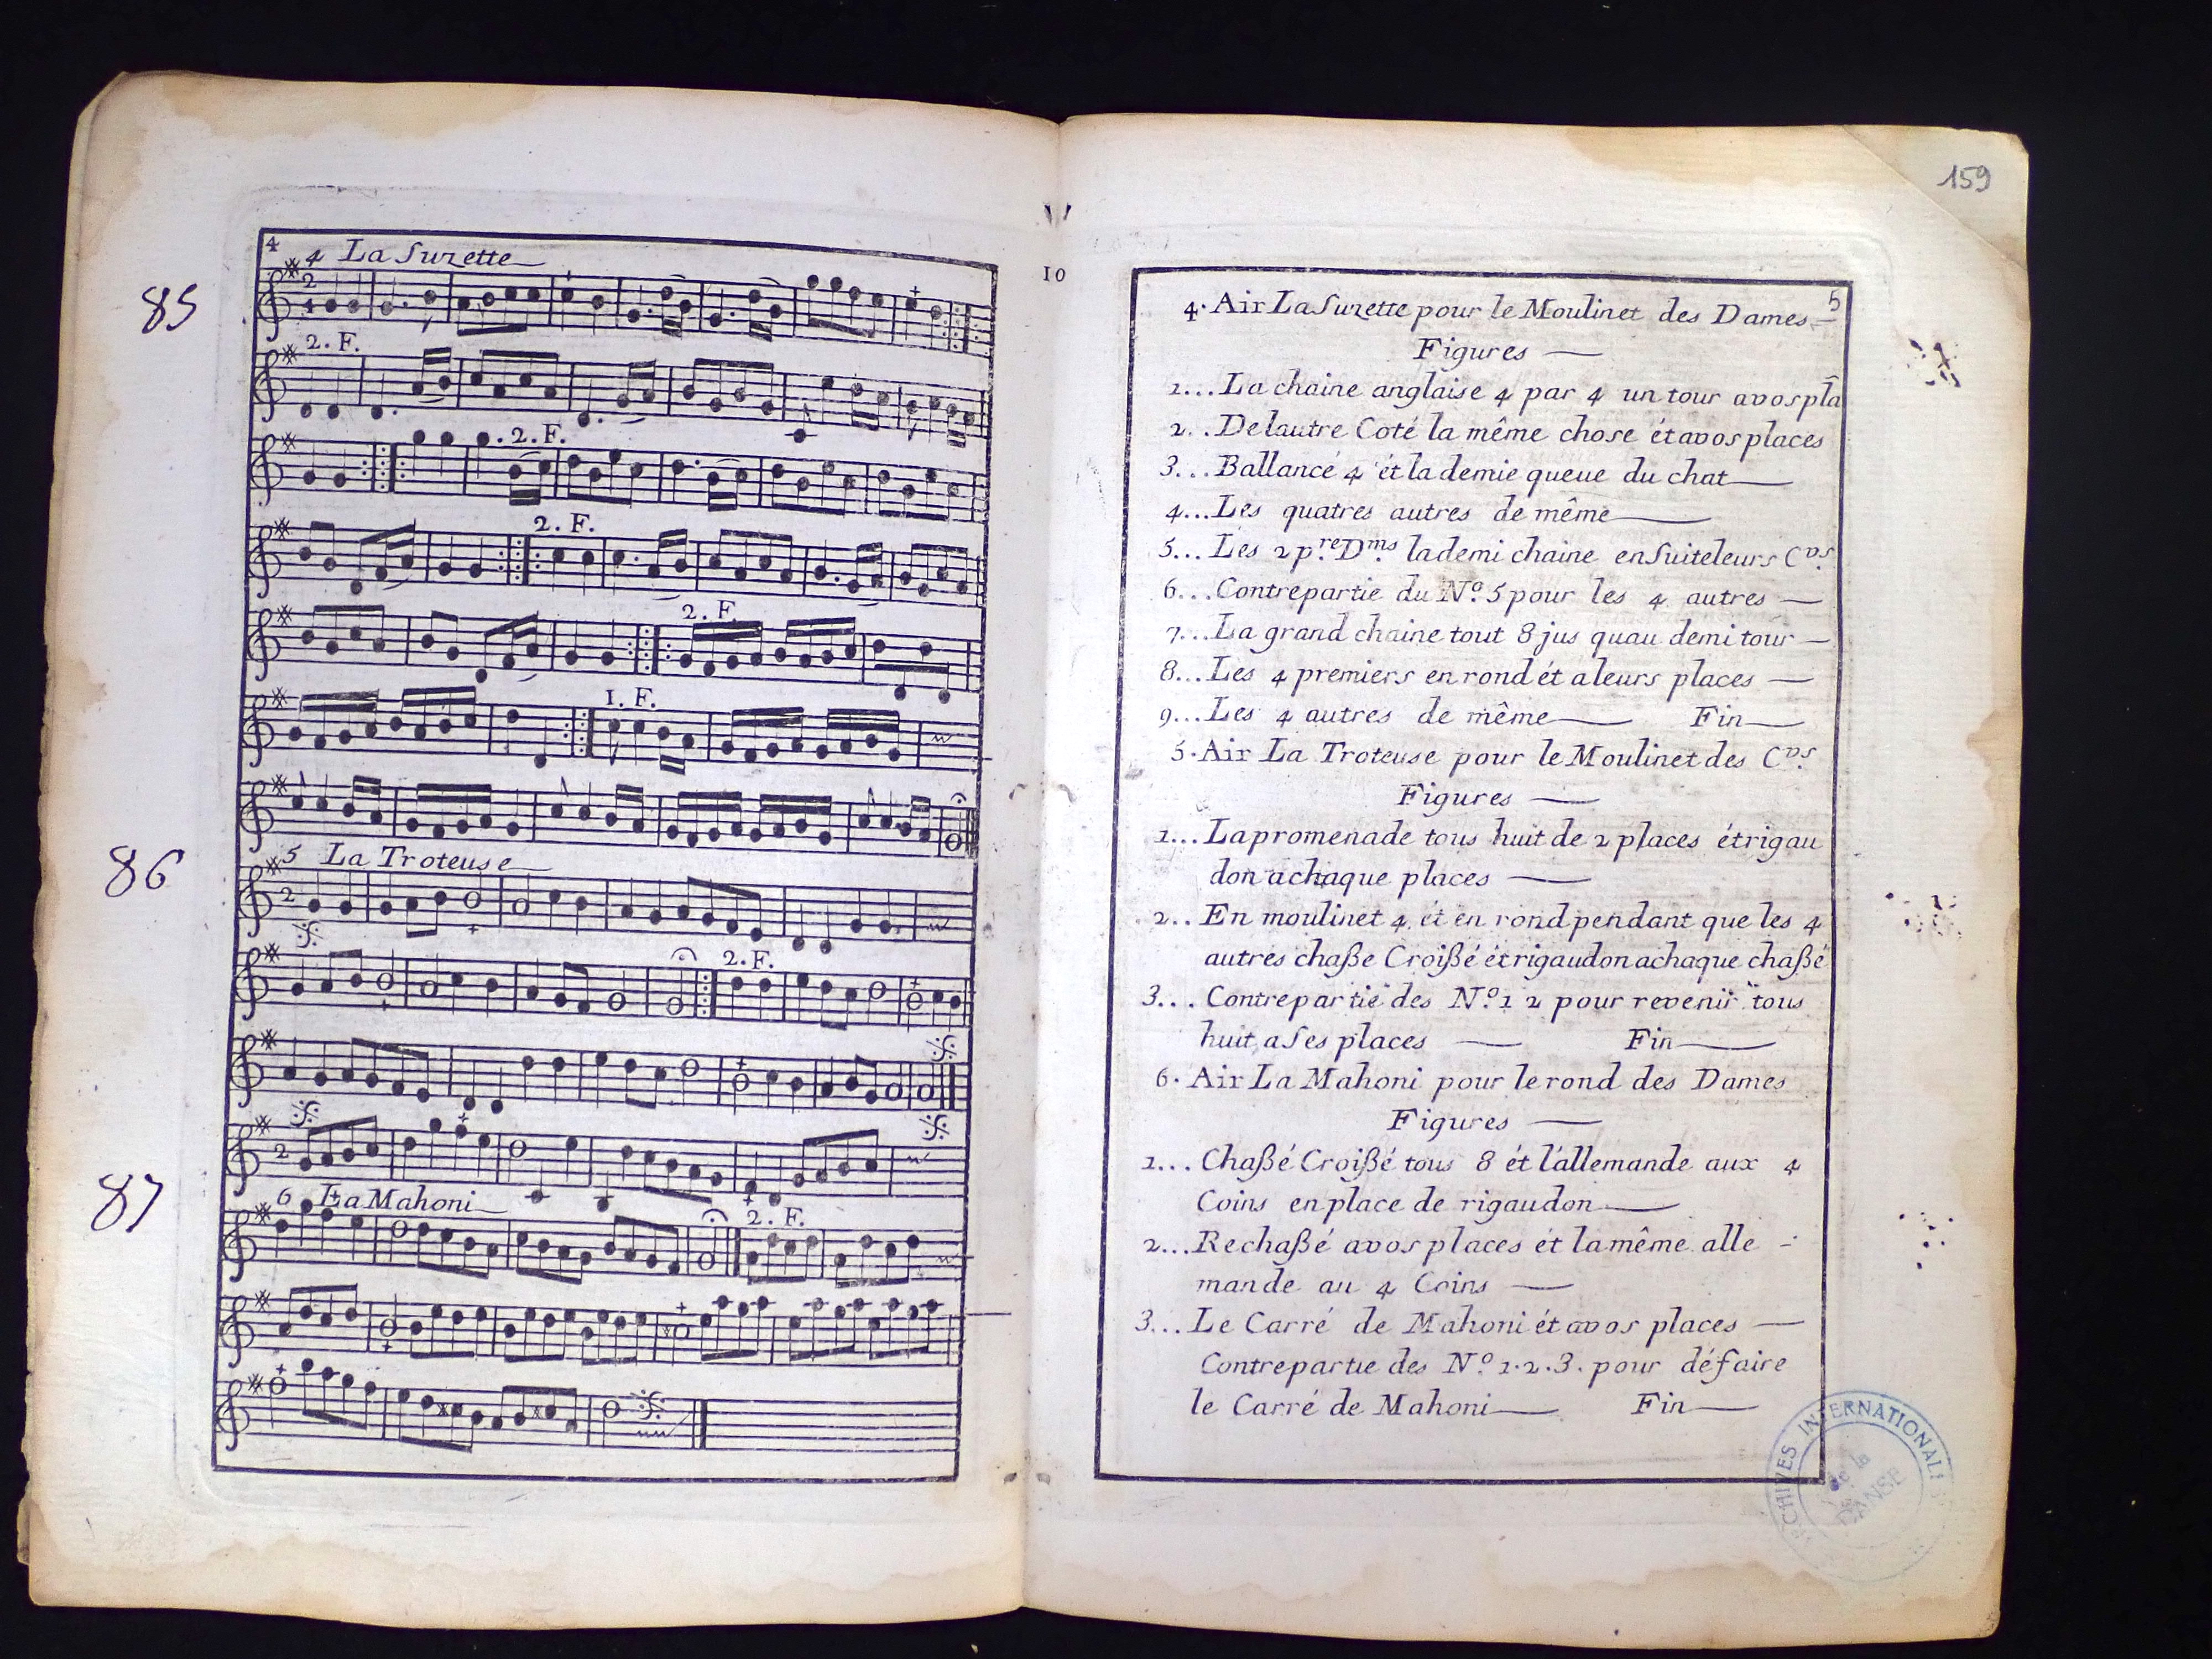 4
4 La Suzette
85
2. F.
2. F.
2. F.
2. F.
1. F.
86
5 La Troteuse
2. F.
87
6 La Mahoni
2. F.
10
159
5
4. Air La Suzette pour le Moulinet des Dames
Figures
1... La chaine anglaise 4 par 4 un tour avos pla
2.. Delautre Coté la même chose ét avos places
3... Ballancé 4 ét la demie queue du chat
4... Les quatres autres de même
5... Les 2 p.re D.ms la demi chaine en Suite leurs C.vs
6... Contrepartie du N.o 5 pour les 4 autres
7... La grand chaine tout 8 jus quau demi tour
8... Les 4 premiers en rond ét a leurs places
9... Les 4 autres de même Fin
5. Air La Troteuse pour le Moulinet des C.vs
Figures
1... La promenade tous huit de 2 places ét rigau
don a chaque places
2.. En moulinet 4 ét en rond pendant que les 4
autres chaßé Croißé ét rigaudon a chaque chaßé
3... Contrepartie des N.o 1 2 pour revenir tous
huit a Ses places Fin
6. Air La Mahoni pour le rond des Dames
Figures
1... Chaßé Croißé tous 8 ét l'állemande aux 4
Coins en place de rigaudon
2... Rechaßé avos places ét la même alle
mande au 4 Coins
3... Le Carré de Mahoni ét avos places
Contrepartie des N.o 1.2.3. pour défaire
le Carré de Mahoni Fin
ARCHIVES INTERNATIONALES
de la
DANSE